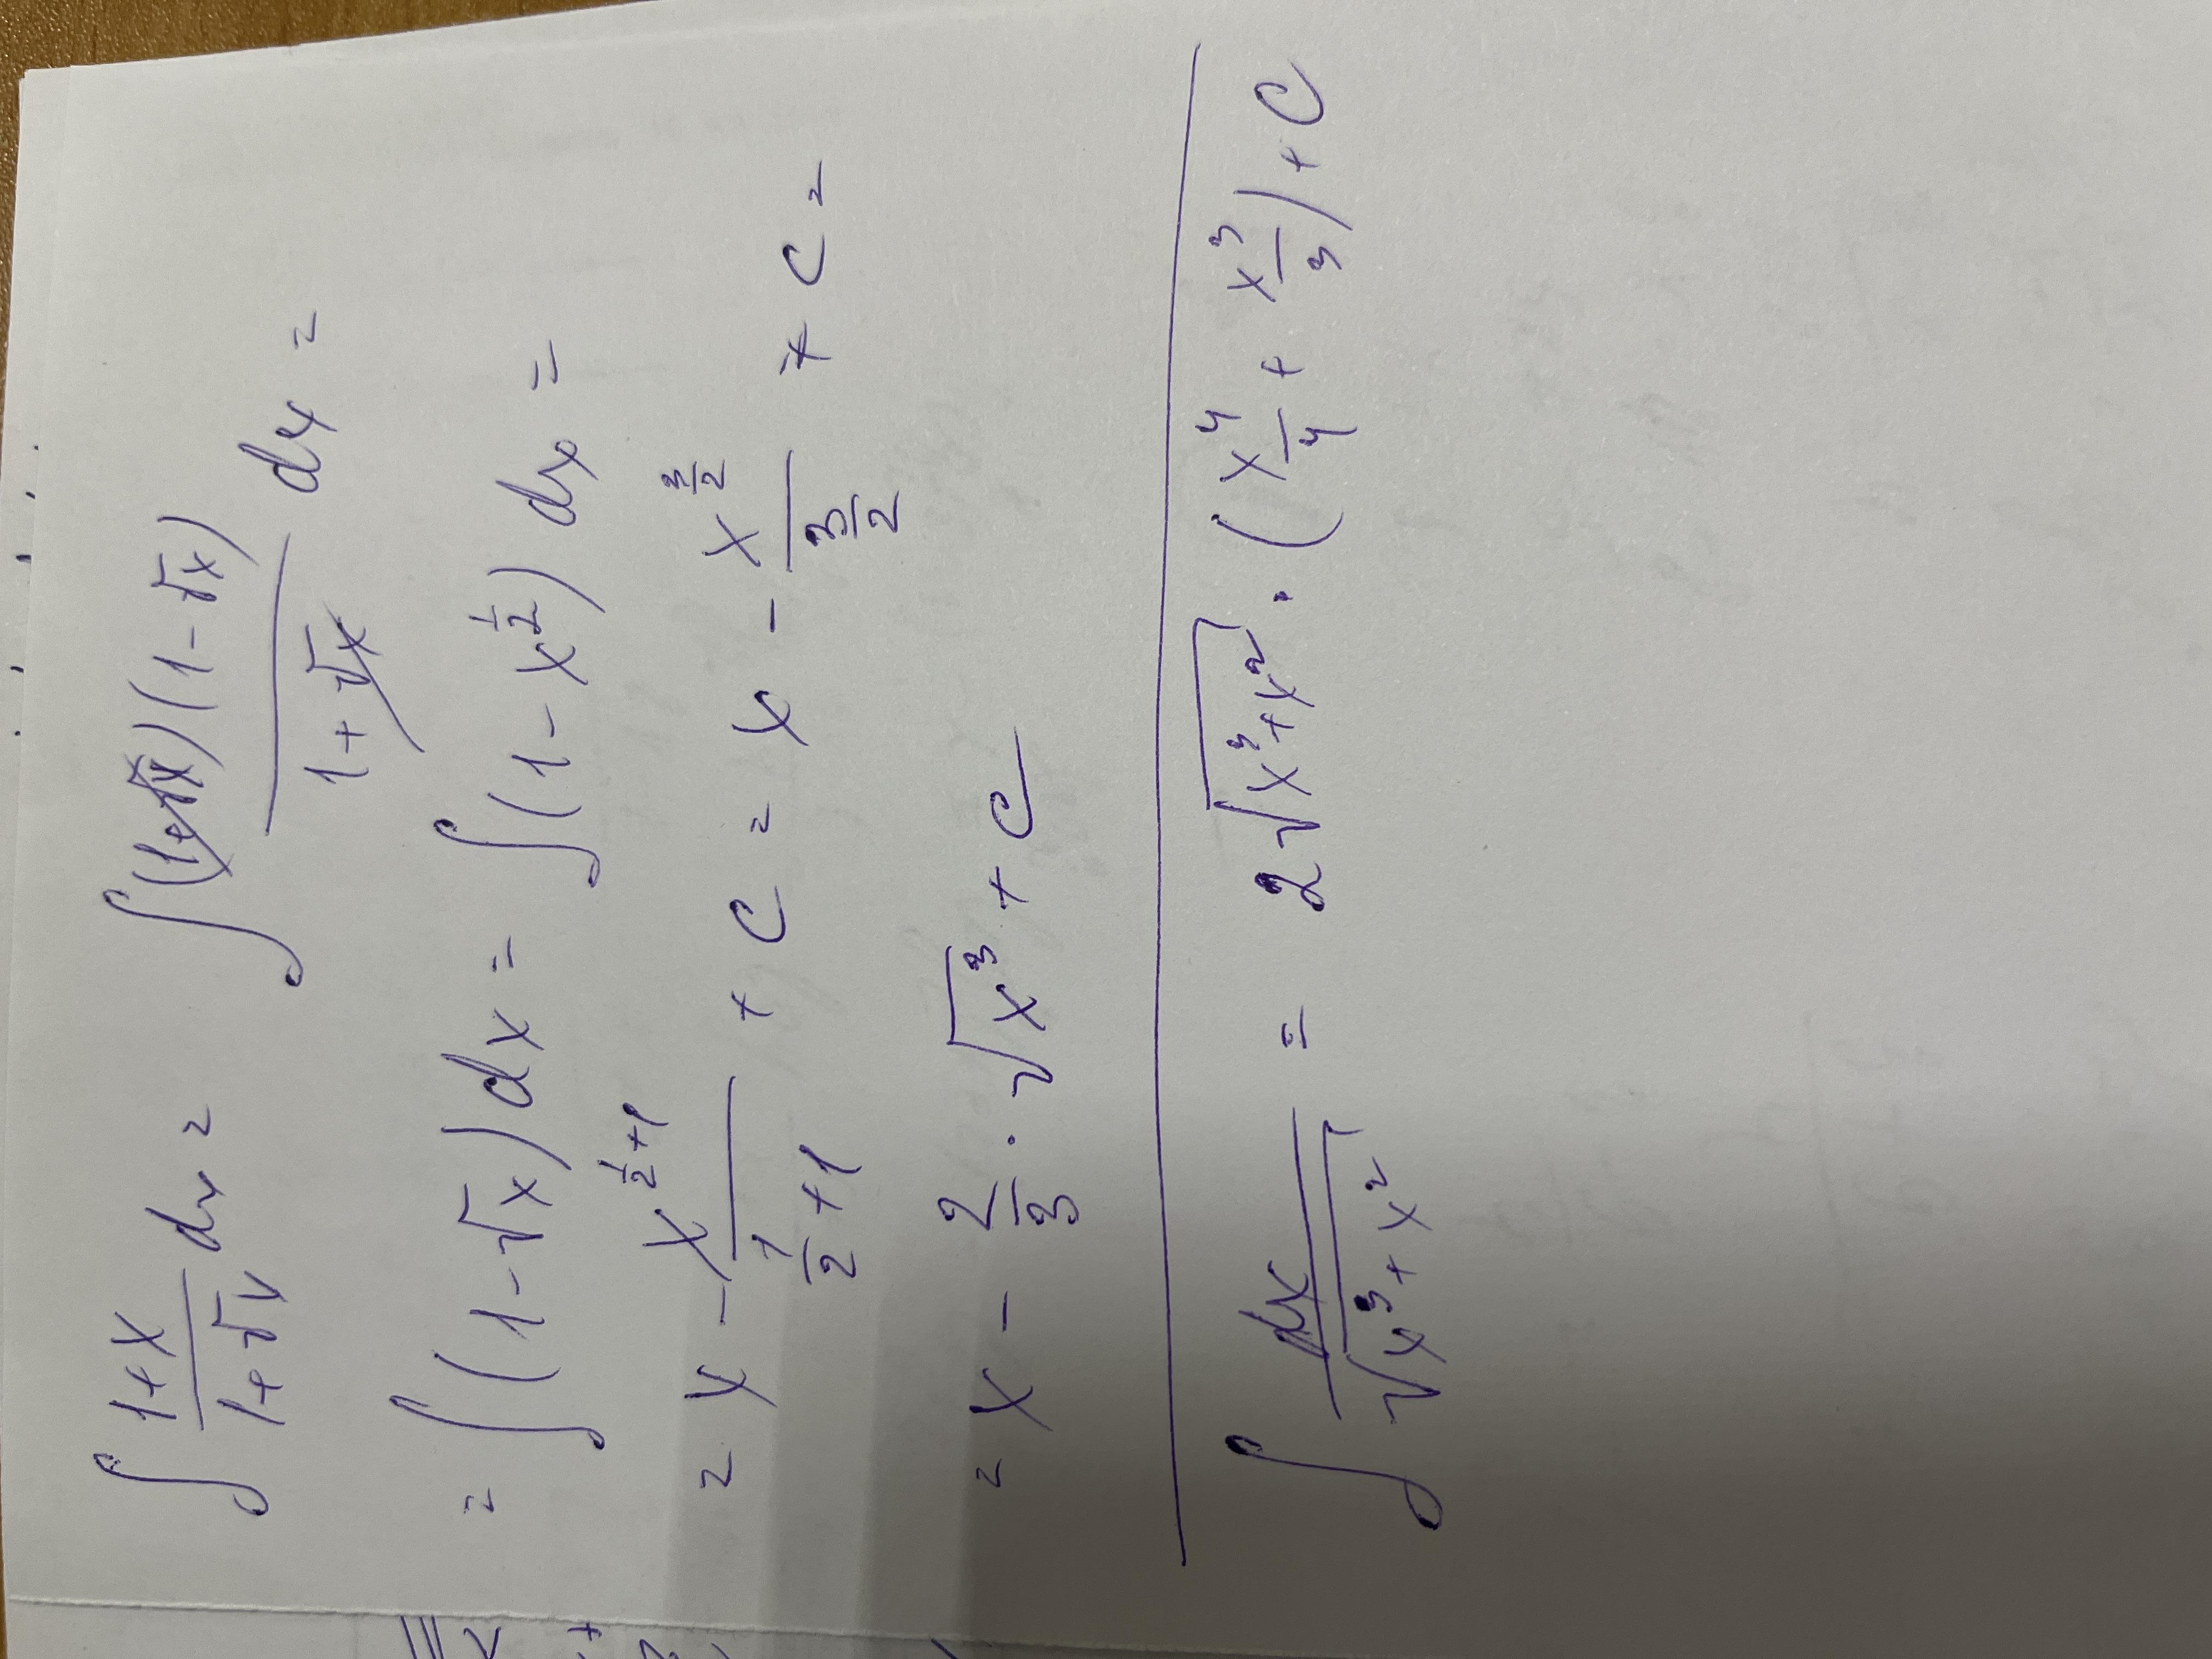 ∫ (1+x)/(1+√x) dx = ∫ ((1+√x)(1-√x))/(1+√x) dx =
= ∫ (1-√x) dx = ∫ (1-x^(1/2)) dx =
= x - x^(1/2+1)/(1/2+1) + C = x - x^(3/2)/(3/2) + C =
= x - 2/3 · √(x³) + C
∫ dx/√(x³+x²) = 2√(x³+x²) · (x⁴/4 + x³/3) + C